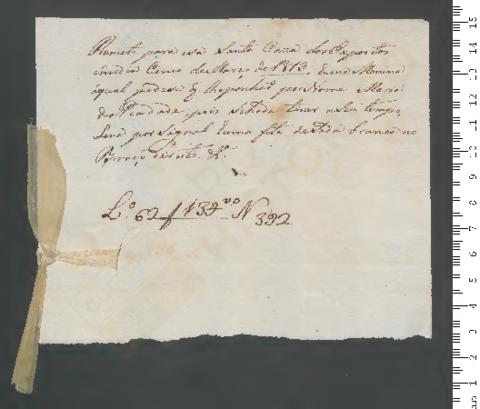 Remete para esta Santa Caza dos Expostos
em dia Cinco de Março de 1813 huma Menina
a qual pede se q lhe ponhão por Nome Maria
da Piedade pois se hade tirar a seu tempo
Leva por signal huma fita de seda branca no
Pescoço
L.º 62 f 139 vº N 392
15
14
13
12
11
10
9
8
7
6
5
4
3
2
1